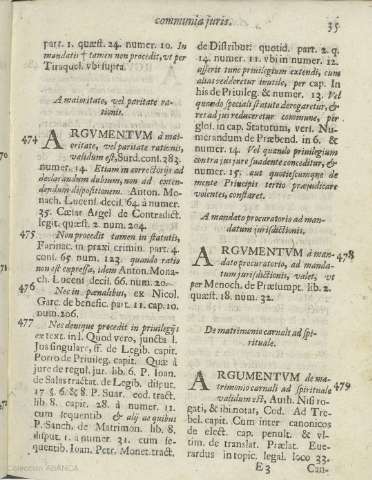 communia juris.
35
part. 1. quæst. 24. numer. 10. In
mandatis † tamen non procedit, vt per
Tiraquel. vbi supra.
A maioritate, vel paritate ra-
tionis.
474 ARGVMENTVM à mai-
oritate, vel paritate rationis,
validum est, Surd. cons. 283.
numer. 14. Etiam in correctorijs ad
declarandum dubium, non ad exten-
dendum dispositionem. Anton. Mo-
nach. Lucens. decis. 64. à numer.
35. Cæsar Argel de Contradict.
legit. quæst. 2. num. 204.
475 Non procedit tamen in statutis,
Farinac. in praxi crimin. part. 4.
cons. 65. num. 123. quando ratio
non est expressa, idem Anton. Mona-
ch. Lucens. decis. 66. num. 20.
476 Nec in pœnalibus, ex Nicol.
Garc. de benefic. part. 11. cap. 10.
num. 206.
477 Nec denique procedit in privilegijs
ex text. in l. Quod vero, juncta l.
Jus singulare, ff. de Legib. capit.
Porro de Privileg. capit. Quæ à
jure de regul. jur. lib. 6. P. Ioan.
de Salas tractat. de Legib. disput.
17. §. 6. & 8. P. Suar. eod. tract.
lib. 8. capit. 28. à numer. 11.
cum sequentib. & alij ex quibus
P. Sanch. de Matrimon. lib. 8.
disput. 1. à numer. 31. cum se-
quentib. Ioan. Petr. Monet. tract.
de Distribut. quotid. part. 2. q.
14. numer. 11. vbi in numer. 12.
asserit tunc privilegium extendi, cum
alias redderetur inutile, per cap. In
his de Privileg. & numer. 13. Vel
quando speciali statuto derogaretur, &
res ad jus reduceretur commune, per
glos. in cap. Statutum, vers. Nu-
merandum de Præbend. in 6. &
numer. 14. Vel quando privilegium
contra jus jure suadente conceditur, &
numer. 15. aut quotiescumque de
mente Principis tertio præjudicare
volentes, constaret.
A mandato procuratorio ad man-
datum jurisdictionis.
ARGVMENTVM à man- 478
dato procuratorio, ad manda-
tum jurisdictionis, valet, vt
per Menoch. de Præsumpt. lib. 2.
quæst. 18. num. 32.
De matrimonio carnali ad spi-
rituale.
ARGUMENTVM de ma- 479
trimonio carnali ad spirituale
validum est, Aush. Nis ro-
gati, & ibi notat, Cod. Ad Tre-
bel. capit. Cum inter canonicos
de elect. cap. penult. & vl-
tim. de translat. Prælat. Eue-
rardus in topic. legal. loco 33.
E 3
Can-
70
71
Colección ABANCA